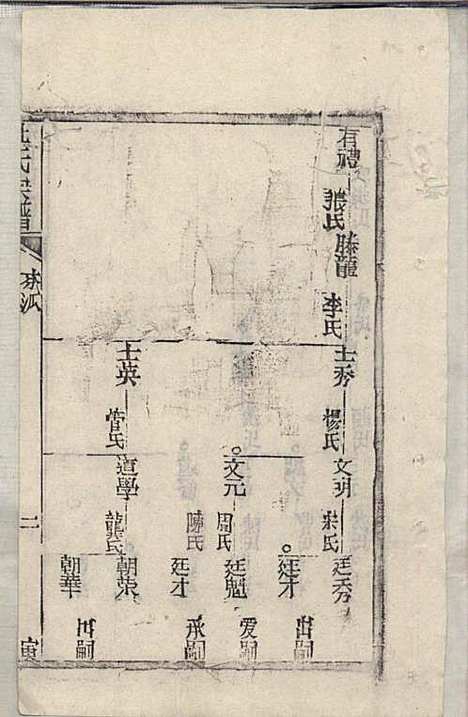 有禮
張氏
滕龍
李氏
士秀
楊氏
士英
管氏
文明
宋氏
文元
周氏
陳氏
道學
龔氏
廷秀
出嗣
廷才
廷魁
爱嗣
廷才
承嗣
朝榮
朝華
出嗣
氏宗譜
派
二